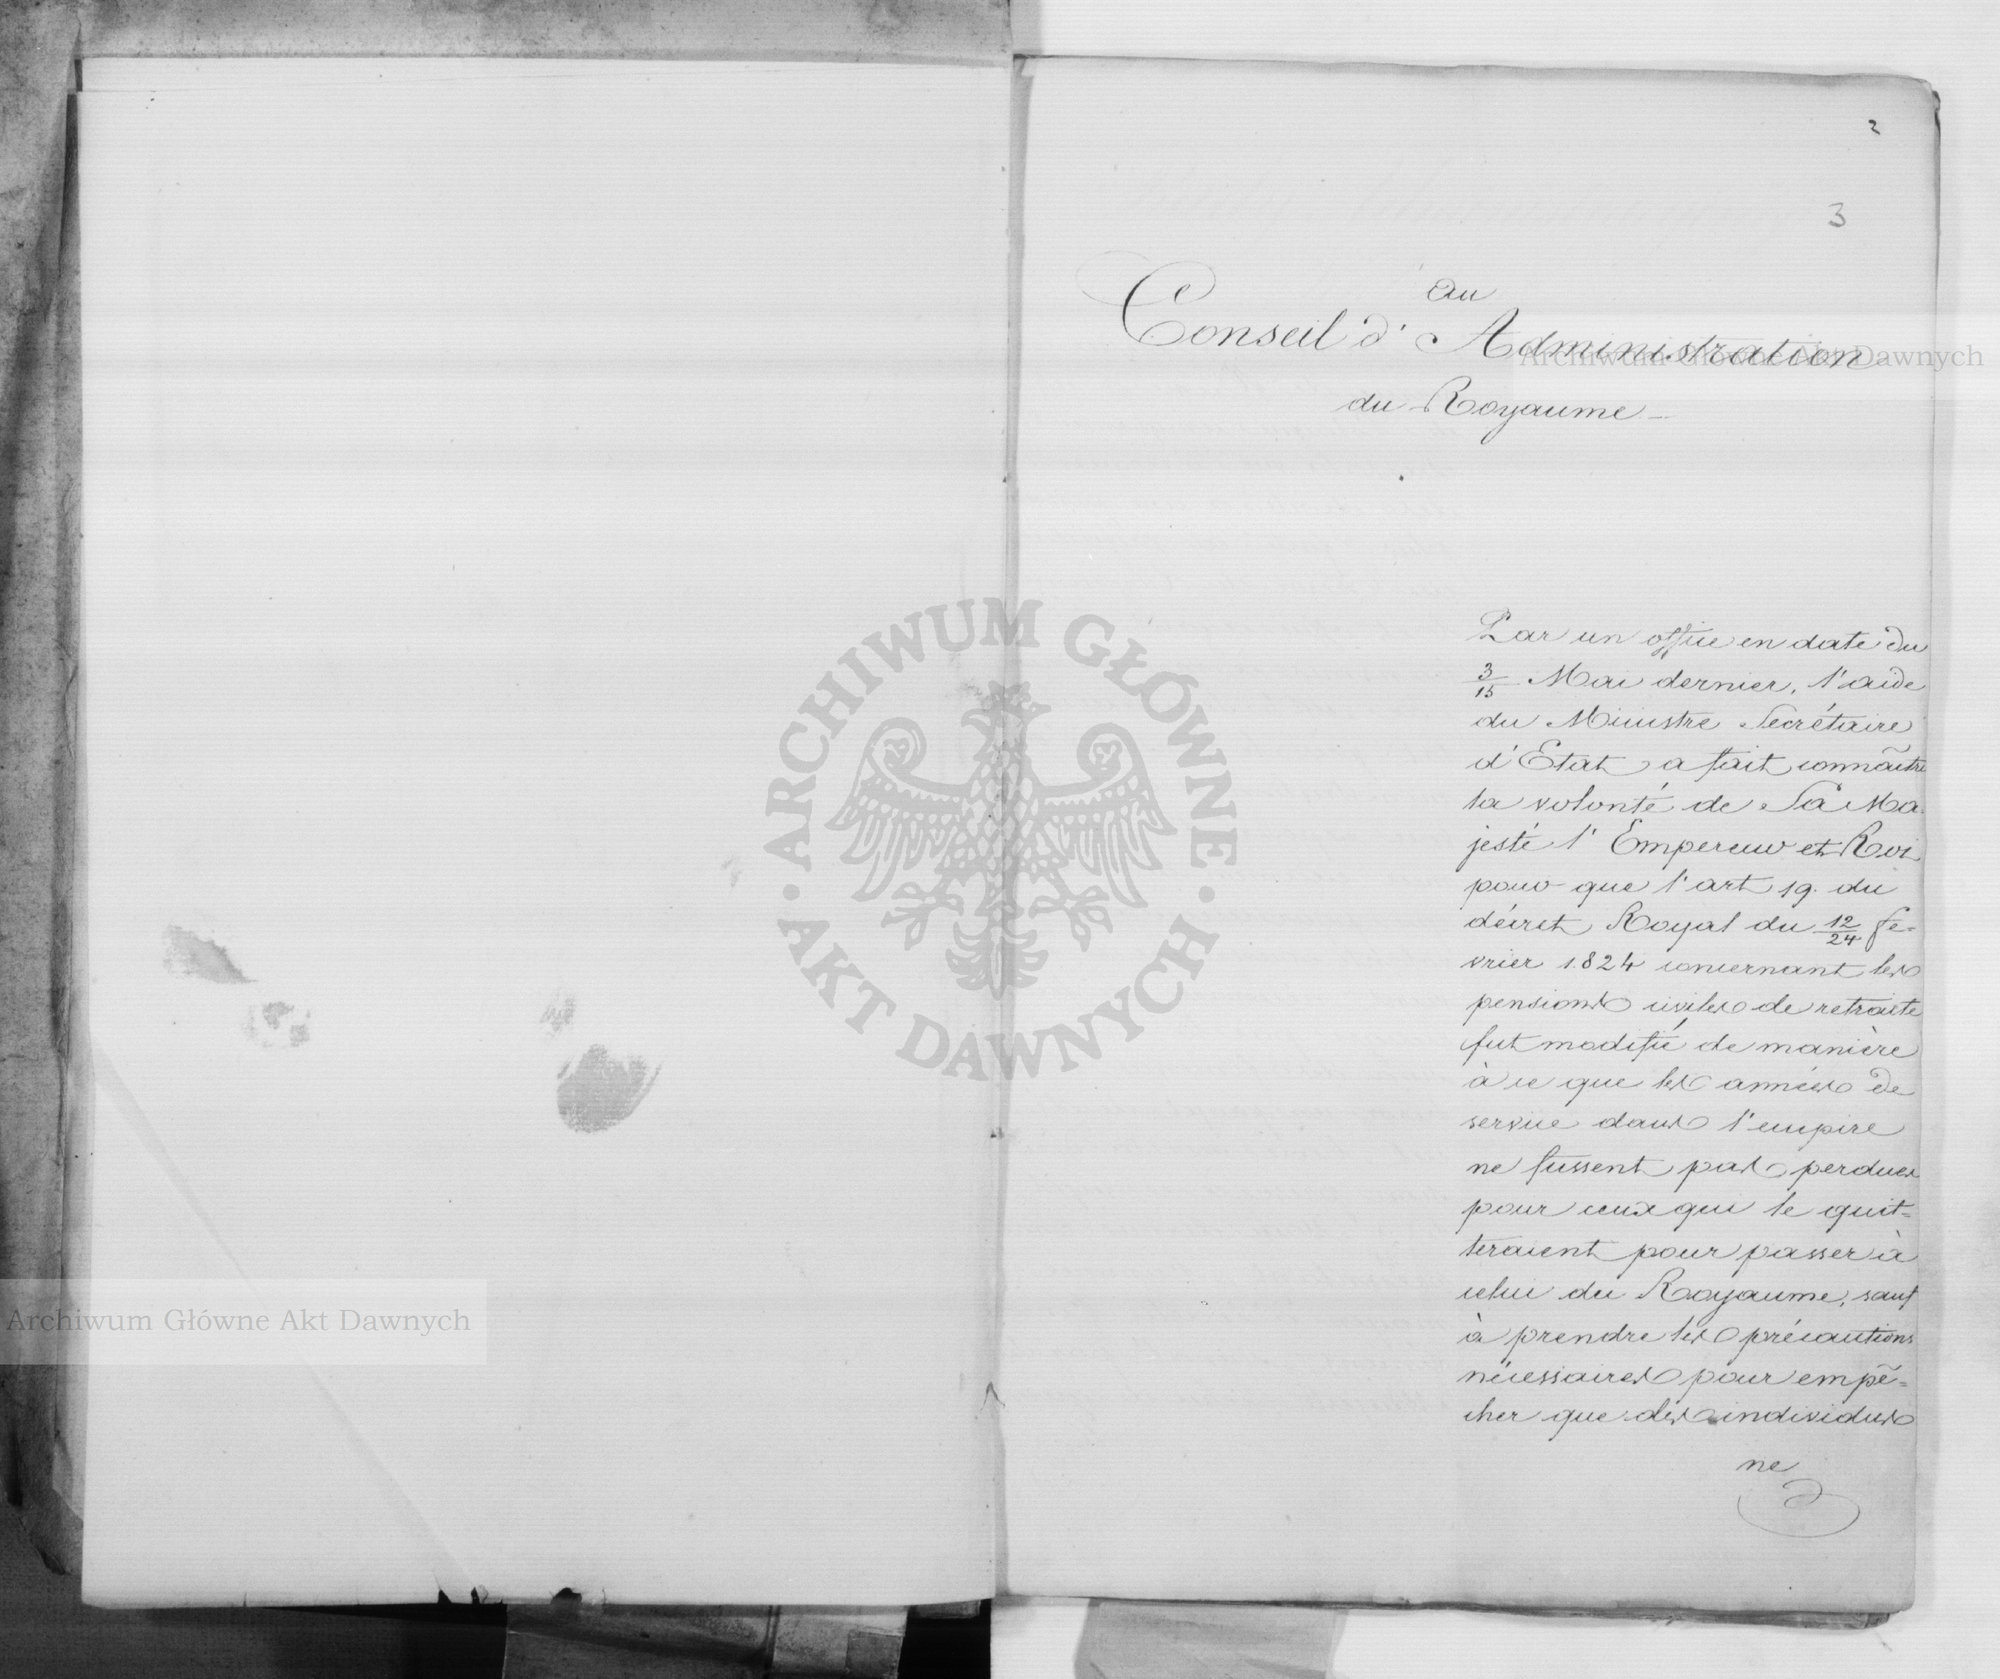 2
3
Au
Conseil d'Administration
du Royaume
Par un office en date du
3/15 Mai dernier, l'aide
du Ministre Secrétaire
d'Etat a fait connaître
la volonté de Sa Ma-
jesté l'Empereur et Roi
pour que l'art 19. du
décret Royal du 12/24 fe-
vrier 1824 concernant les
pensions civiles de retraite
fut modifié de manière
à ce que les années de
service dans l'empire
ne fussent pas perdues
pour ceux qui le quit=
teraient pour passer à
celui du Royaume, sauf
à prendre les précautions
nécessaires pour empê=
cher que des individus
ne
ARCHIWUM GŁÓWNE
AKT DAWNYCH
Archiwum Główne Akt Dawnych
Archiwum Główne Akt Dawnych